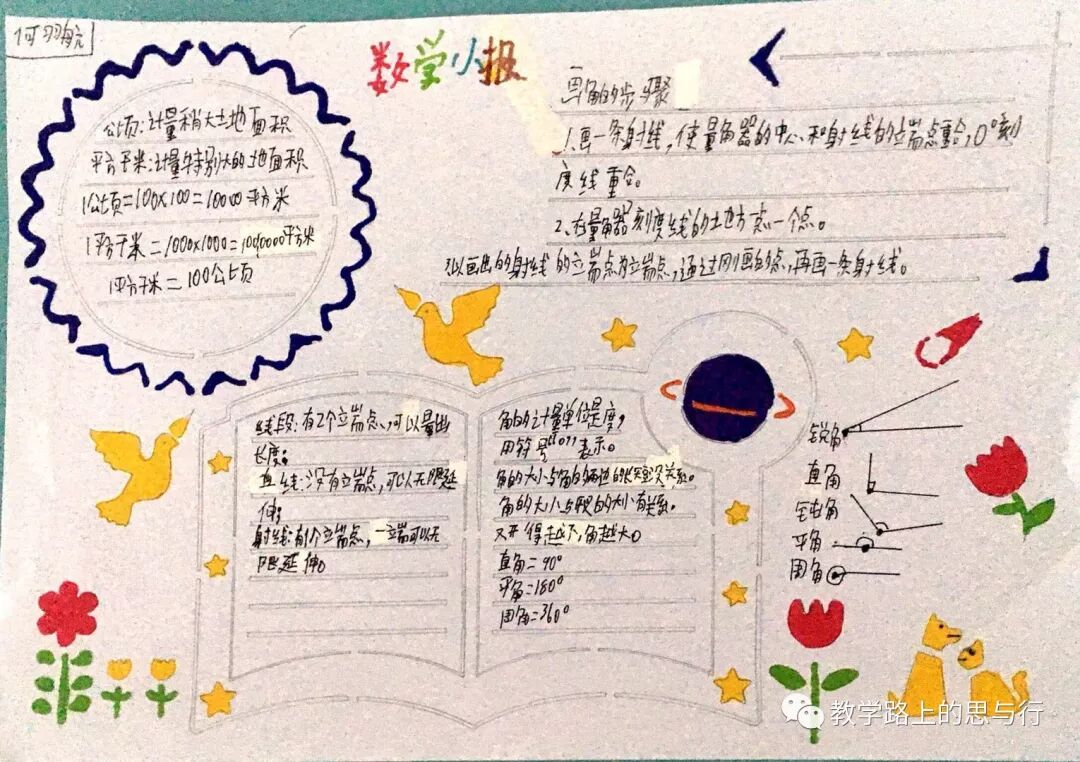 何羽航
数学小报
公顷:计量稍大土地面积
平方千米:计量特别大的土地面积
1公顷=100×100=10000平方米
1平方千米=1000×1000=1000000平方米
1平方千米=100公顷
画角的步骤
1、画一条射线,使量角器的中心和射线的端点重合,0°刻
度线重合。
2、在量角器 刻度线的土地方点一个点。
3、以画出的射线的端点为端点,通过刚画的点,再画一条射线。
线段:有2个端点,可以量出
长度;
直线:没有端点,可以无限延
伸;
射线:有1个端点,一端可以无
限延伸。
角的计量单位是度,
用符号“°”表示。
角的大小与角的两边的长短没关系。
角的大小与 的大小有关系。
叉开得越大,角越大。
直角=90°
平角=180°
周角=360°
锐角
直角
钝角
平角
周角
教学路上的思与行